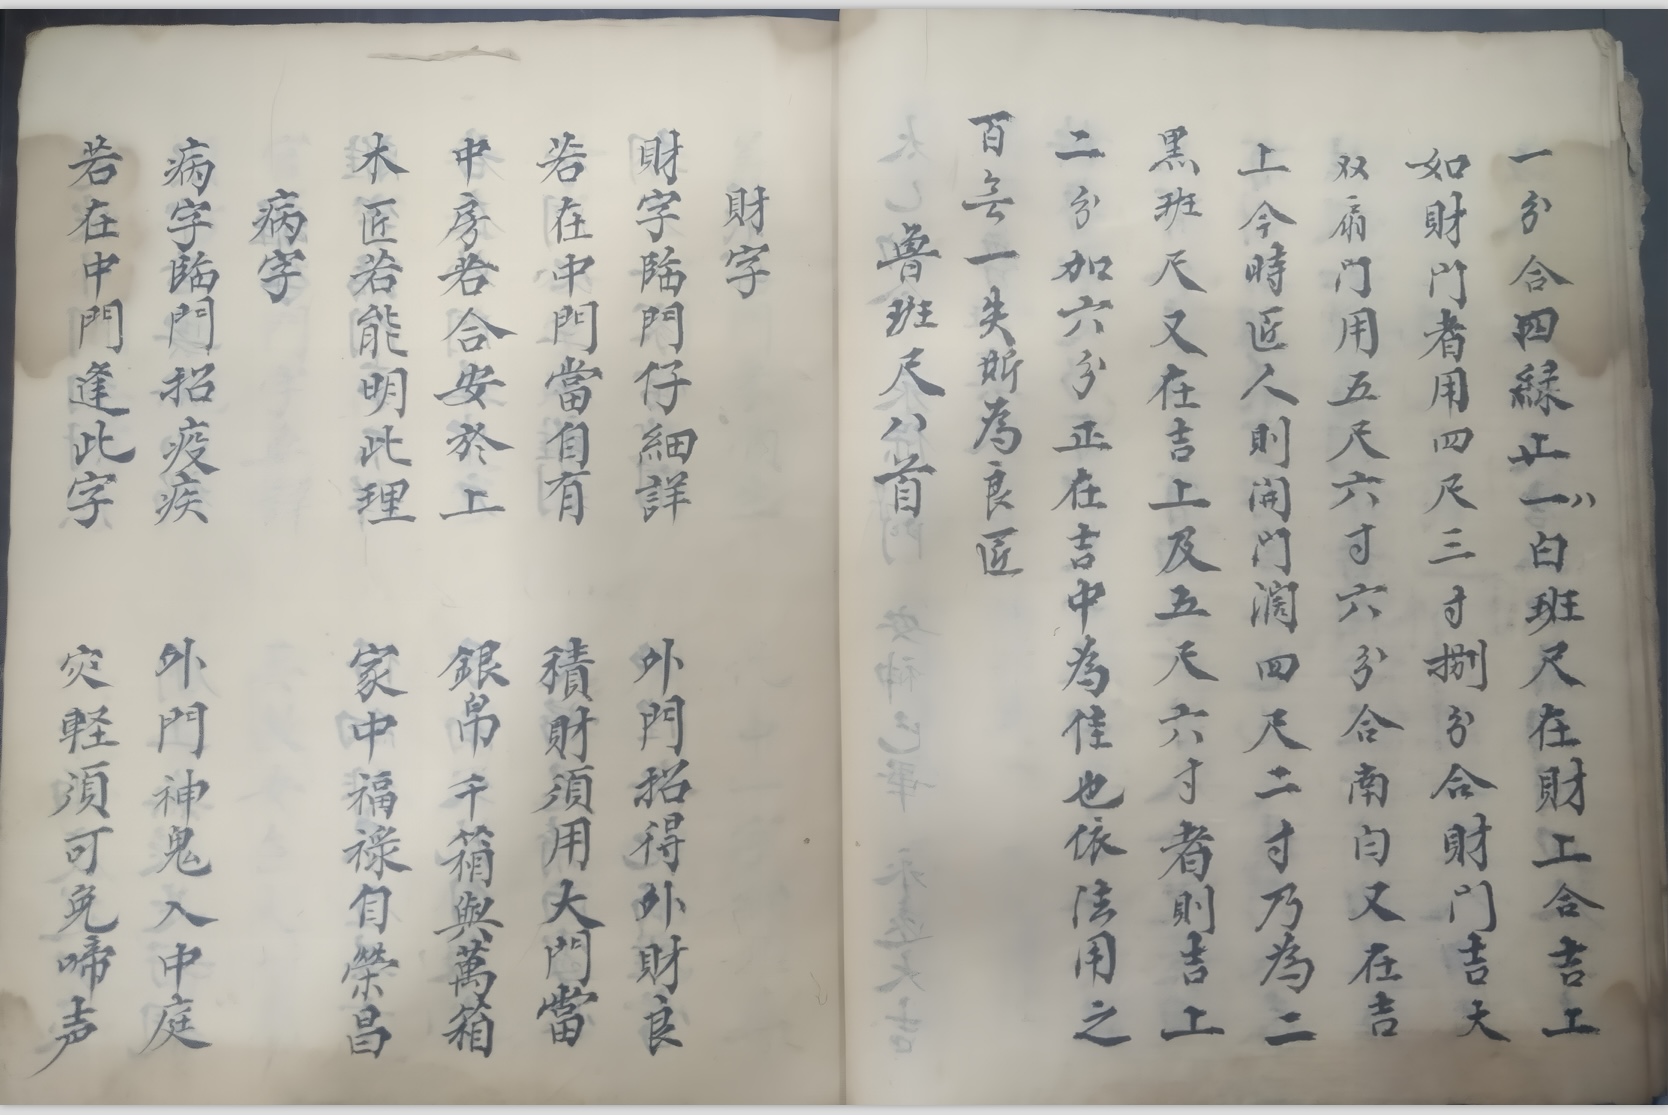 一分合四緑止一〃白班尺在財上合吉上
如財門者用四尺三寸捌分合財門吉大
双扇門用五尺六寸六分合南白又在吉
上今時匠人則開門濶四尺二寸乃為二
黒班尺又在吉上及五尺六寸者則吉上
二分加六分正在吉中為佳也依法用之
百無一失斯為良匠
魯班尺八首
財字
財字臨門仔細詳 外門招得外財良
若在中門當自有 積財須用大門當
中房若合安於上 銀帛千箱與萬箱
木匠若能明此理 家中福禄自榮昌
病字
病字臨門招疫疾 外門神鬼入中庭
若在中門逢此字 灾軽須可免啼声